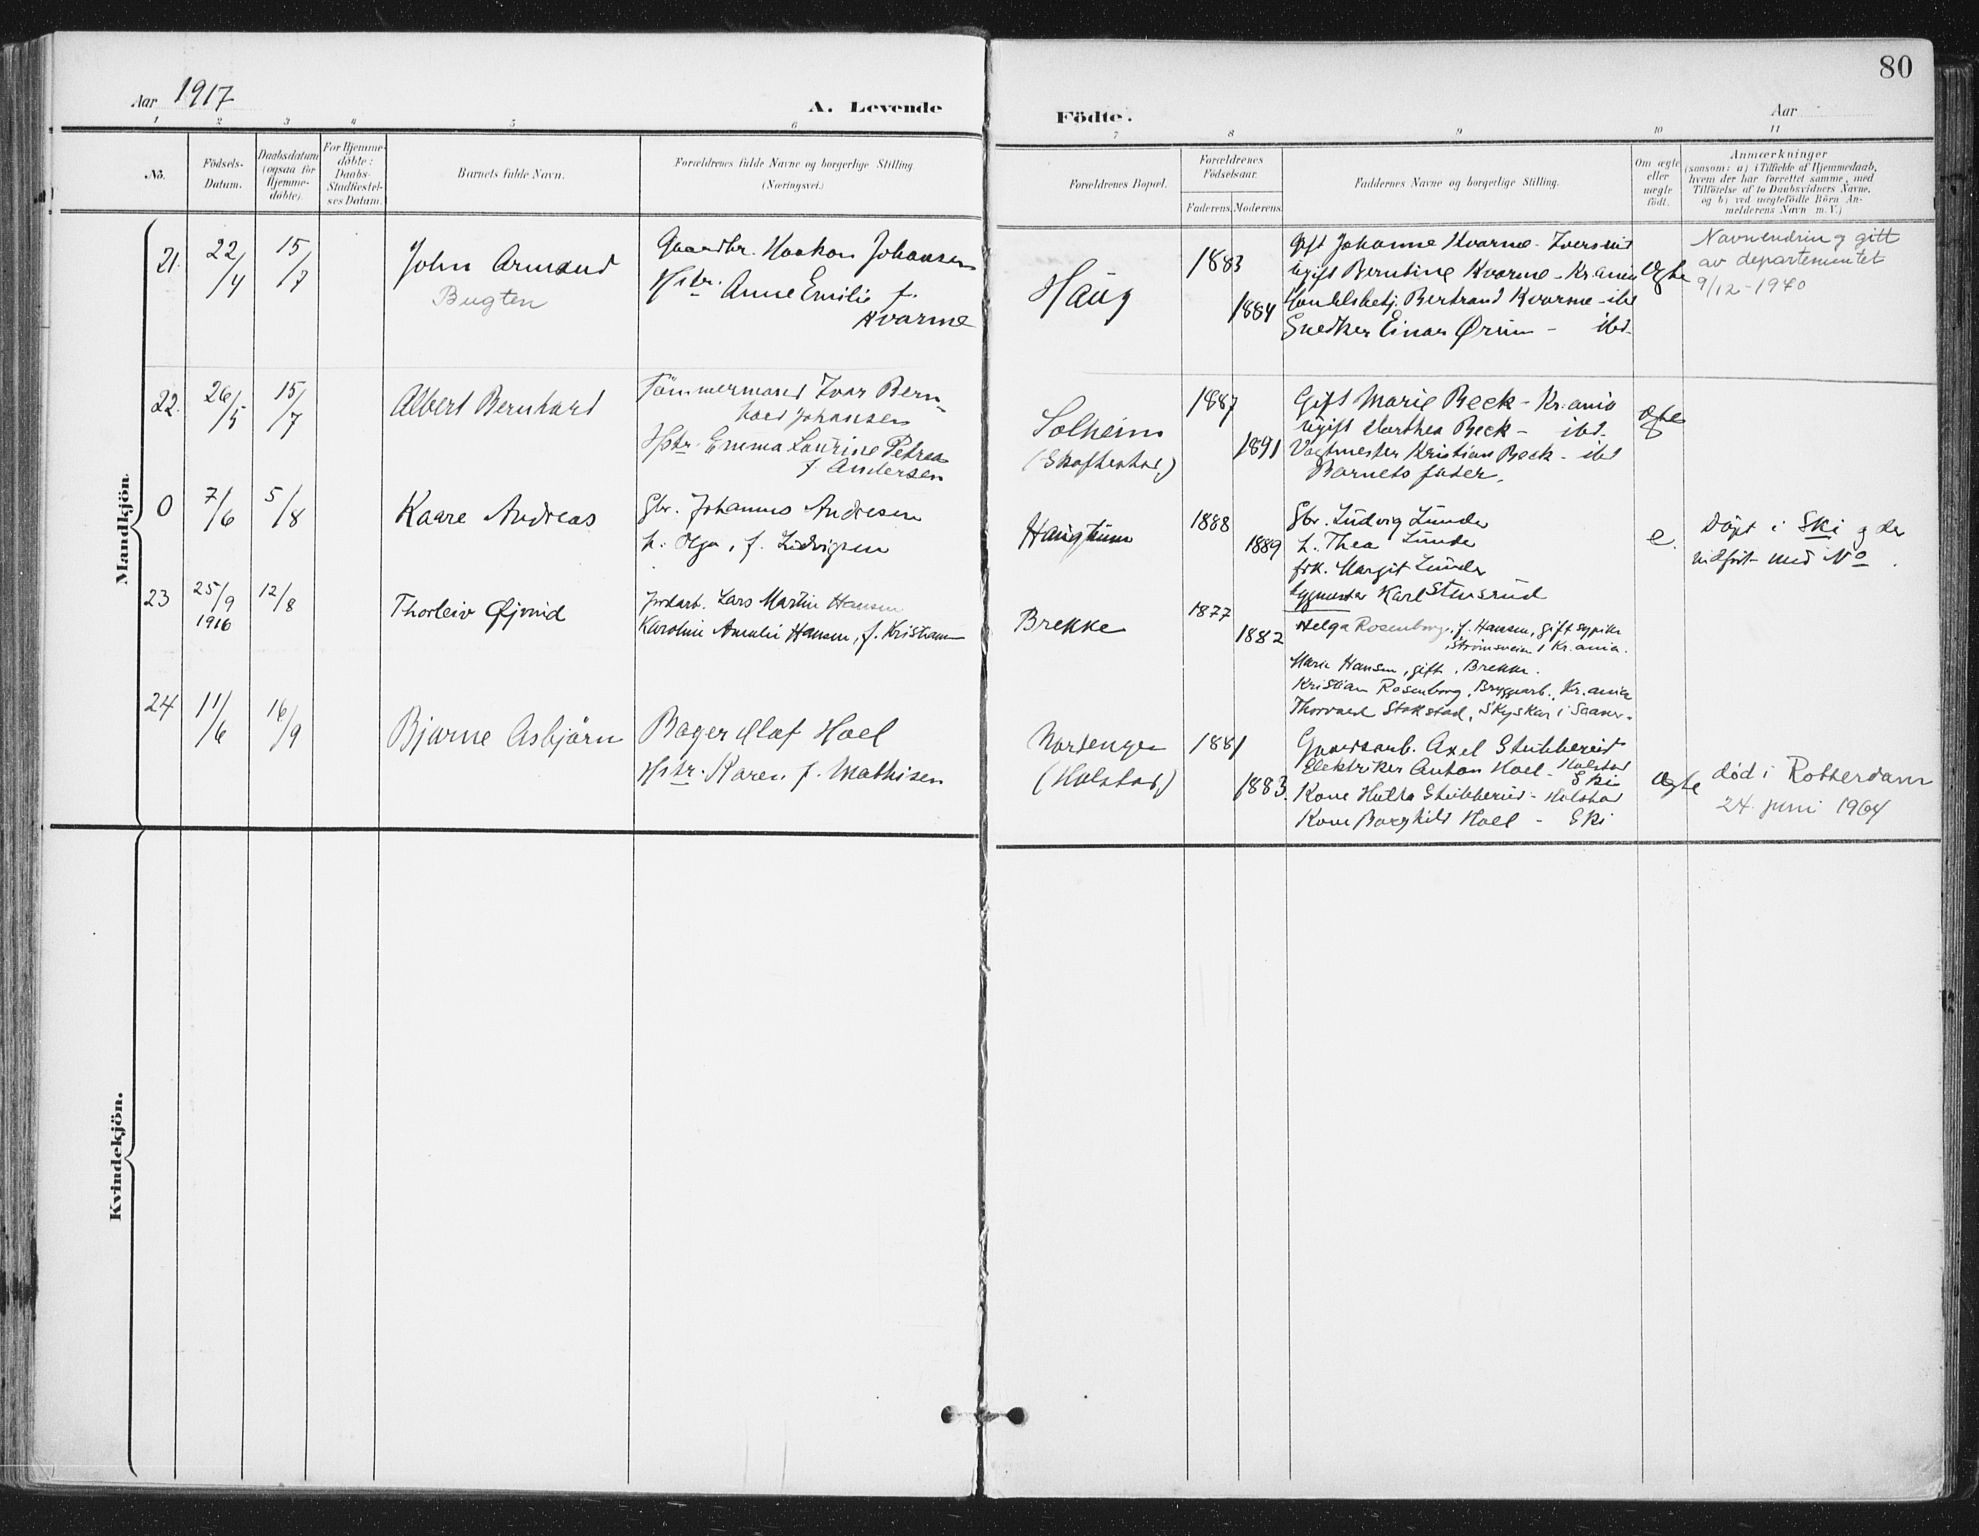 80
Aar 1917
A. Levende
Födte.
Aar
1 2 3 4 5 6 7 8 9 10 11
No.
Födsels-
Datum.
Daabsdatum
(ogsaa for
Hjemme-
døbte).
For Hjemme-
døbte:
Daabs-
Stadfæstel-
ses Datum.
Barnets fulde Navn.
Forældrenes fulde Navne og borgerlige Stilling.
(Næringsvei.)
Forældrenes Bopæl.
Forældrenes
Födselsaar.
Faderens. Moderens.
Faddernes Navne og borgerlige Stilling.
Om ægte
eller
uægte
födt.
Anmærkninger
(saasom: a) i Tilfælde af Hjemmedaab,
hvem der har forrettet samme, med
Tilföielse af to Daabsvidners Navne,
og b) ved uægtefödte Börn An-
melderens Navn m. V.)
Mandkjön.
21. 22/4 15/7
John Armand
Bugten
Gaardbr. Haakon Johansen
Hstr. Anne Emilie f.
Kvarme
Haug
1883
1884
Gift Johanne Kvarme -
Ugift Berntine Kvarme - Kr.ania
Bertrand Kvarme - ibd
Snedker Einar Ørum - ibd.
Ægte
Navnendring gitt
av departementet
9/12-1940
22. 26/5 15/7
Albert Bernhard
Tömmermand Ivar Bern-
hard Johansen
Hstr. Emma Laurine Petrea
f. Andersen
Solheim
1887
1891
Gift Marie Beck - Kr.ania
Ugift Marthea Beck - ibd.
Vagtmester Kristian Beck - ibd
Barnets fader.
Ægte
0 7/6 5/8
Kaare Andreas
Gbr. Johannes Andresen
h. Olga, f. Ludvigsen
Haugtum
1888
1889
Gbr. Ludvig Lunde
h. Thea Lunde
frk. Margit Lunde
Karl Stensrud
e.
Döpt i Ski og der
indført med No.
23 25/9 1916 12/8
Thorleiv Øjvind
Jordarb. Lars Martin Hansen
Karoline Amalie Hansen, f. Kristiansen
Brekke
1877
1882
Helga Rosenborg, f. Hansen, gift
Strømsveien 1 Kr.ania.
Marie Hansen, gift, Brekke.
Kristian Rosenborg, Bryggearb., Kr.ania
Thorvald Stokstad, Skyskar i Saaner.
24 11/6 16/9
Bjarne Asbjørn
Bager Olaf Hoel
Hstr. Karen f. Mathisen
Nordengen
(Holstad)
1881
1883.
Gaardsarb. Axel Stubberud
Holstad
Elektriker Anton Hoel - Ski
Kone Hulda Stubberud - Holstad
Kone Borghild Hoel - Ski
Ægte
död i Rotterdam
24. juni 1964
Kvindekjön.